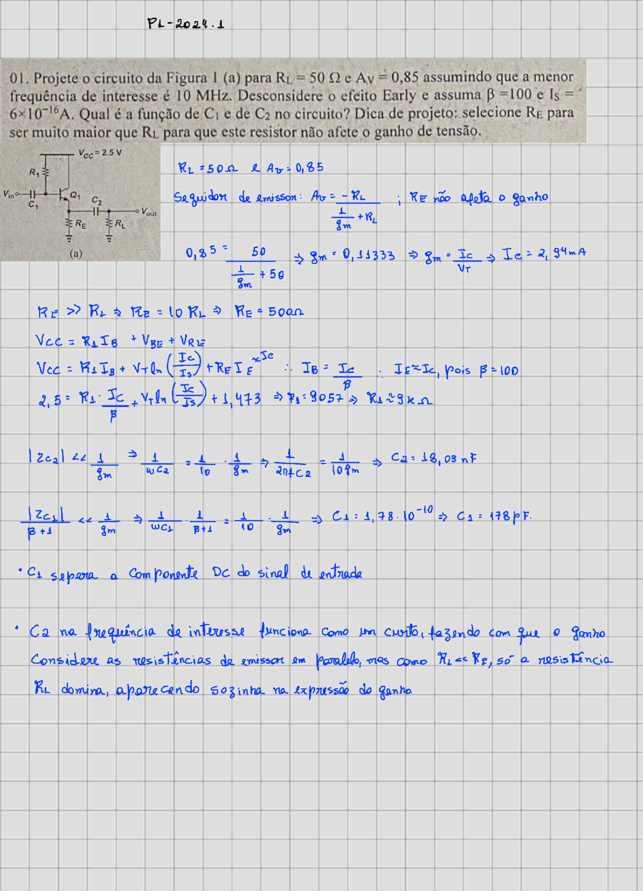 PL-2024.1
01. Projete o circuito da Figura 1 (a) para RL = 50 Ω e AV = 0,85 assumindo que a menor
frequência de interesse é 10 MHz. Desconsidere o efeito Early e assuma β =100 e IS =
6×10⁻¹⁶A. Qual é a função de C1 e de C2 no circuito? Dica de projeto: selecione RE para
ser muito maior que RL para que este resistor não afete o ganho de tensão.
VCC = 2.5 V
R1
Vin
C1
Q1
C2
Vout
RE
RL
(a)
RL = 50Ω e Av = 0,85
Seguidor de emissor: Av = -RL / (1/gm + RL) ; RE não afeta o ganho
0,85 = 50 / (1/gm + 50) ⇒ gm = 0,11333 ⇒ gm = Ic/VT ⇒ Ic = 2,94mA
RE >> RL ⇒ RE = 10 RL ⇒ RE = 500Ω
Vcc = R1 IB + VBE + VRE
Vcc = R1 IB + VT ln (Ic/Is) + RE IE ≈Ic ∴ IB = Ic/β ∴ IE≈Ic, pois β = 100
2,5 = R1 · Ic/β + VT ln (Ic/Is) + 1,473 ⇒ R1 = 9057 ⇒ R1 ≈ 9kΩ
|Zc2| << 1/gm ⇒ 1/ωC2 = 1/10 · 1/gm ⇒ 1/2πfC2 = 1/10gm ⇒ C2 = 18,03 nF
|Zc1|/β+1 << 1/gm ⇒ 1/ωC1 · 1/β+1 = 1/10 · 1/gm ⇒ C1 = 1,78 · 10⁻¹⁰ ⇒ C1 = 178pF.
• C1 separa a componente DC do sinal de entrada
• C2 na frequência de interesse funciona como um curto, fazendo com que o ganho
considere as resistências de emissor em paralelo, mas como RL << RE, só a resistência
RL domina, aparecendo sozinha na expressão do ganho